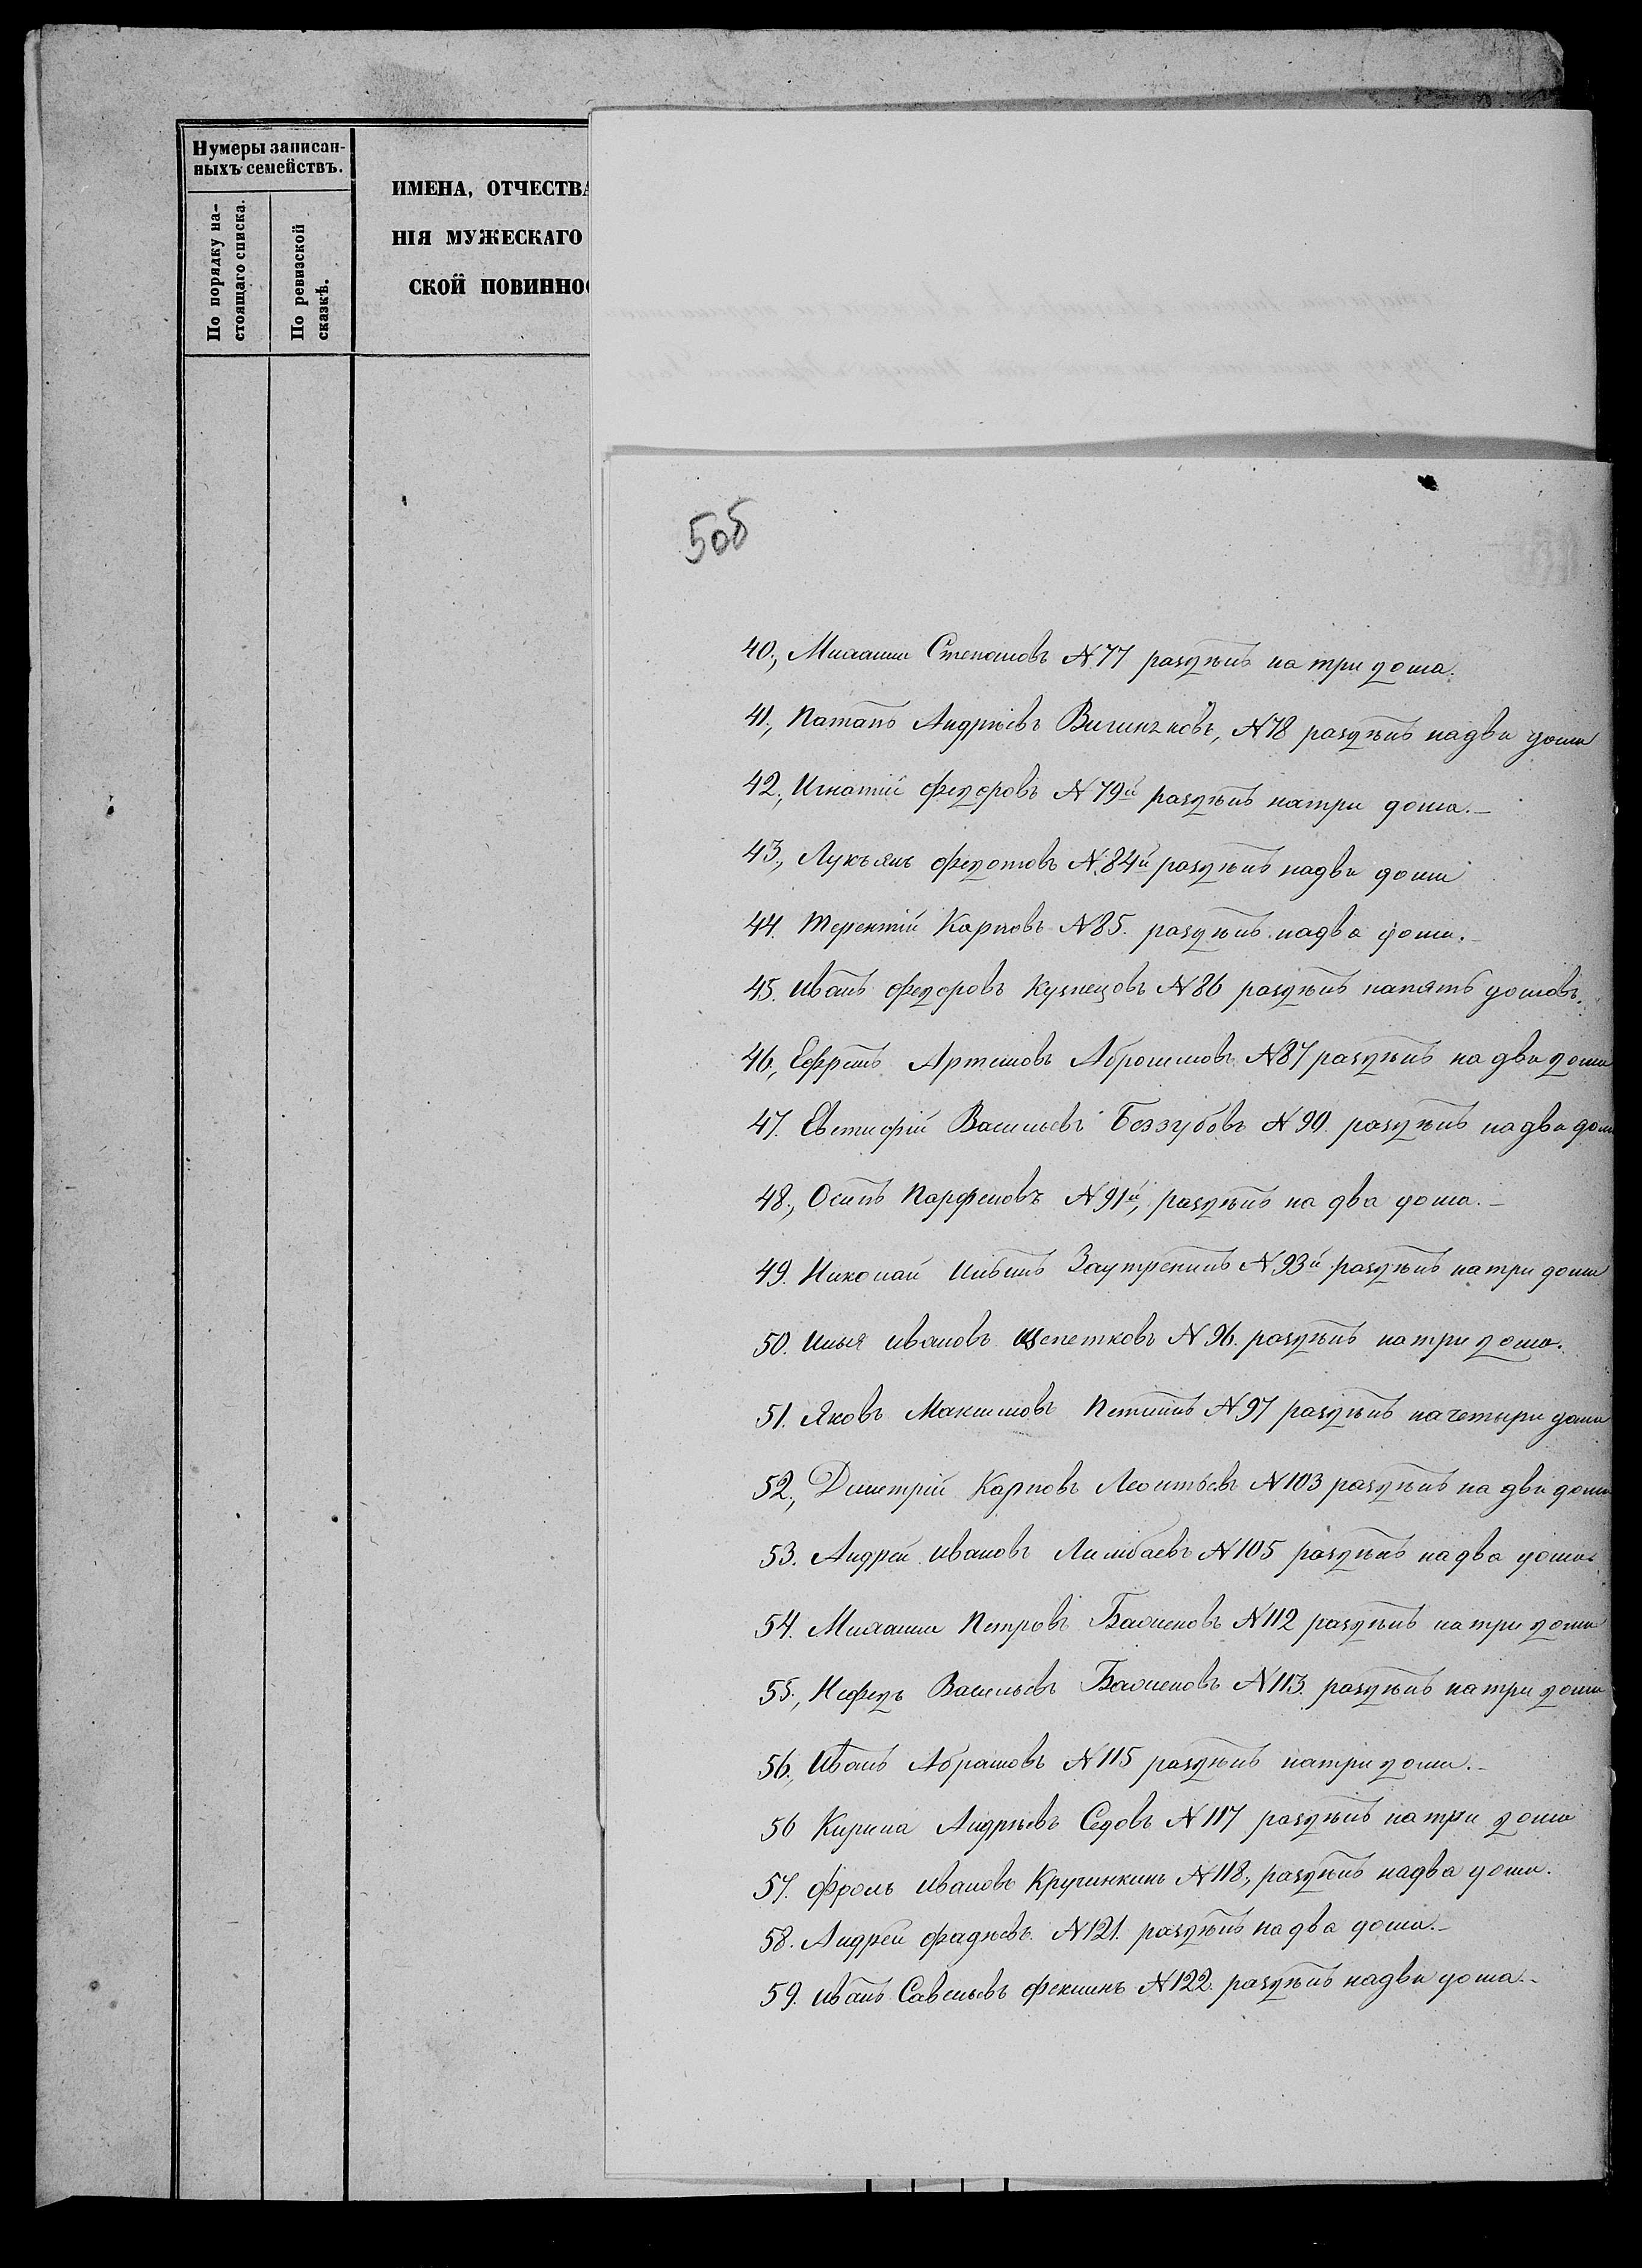 Нумеры записан-
ныхъ семействъ.
По порядку на-
стоящаго списка.
По ревизской
сказкѣ.
ИМЕНА, ОТЧЕСТВА
НІЯ МУЖЕСКАГО
СКОЙ ПОВИННОС
50б
40., Михаила Степановъ №77 раздѣлъ на три дома.
41., Патапъ Андрѣевъ №78 раздѣлъ надва дома
42., Игнатій Федоровъ №79й раздѣлъ натри дома.–
43., Лукъянъ Федотовъ №84й раздѣлъ надва дома
44. Терентій Карповъ №85. раздѣлъ надва дома.–
45. Иванъ Федоровъ Кузнецовъ №86 раздѣлъ напять домовъ.
46., Ефремъ Артемовъ Абросимовъ №87 раздѣлъ на два дома
47. Евстифій Васильевъ Беззубовъ №90. раздѣлъ надва дом
48., Осипъ Парфеновъ №91й, раздѣлъ на два дома.–
49. Николай Ильинъ Заутренинъ №93й раздѣлъ натри дома
50. Илья Ивановъ Щепетковъ №96. раздѣлъ натри дома.
51. Яковъ Максимовъ №97 раздѣлъ начетыри дома
52., Димитрій Карповъ Леонтьевъ №103 раздѣлъ на два дома
53. Андрей Ивановъ №105 раздѣлъ надва дома
54. Михаила Петровъ №112 раздѣлъ натри дома
55., Нефедъ Васильевъ №113. раздѣлъ натри дома
56., Иванъ Абрамовъ №115 раздѣлъ натри дома.–
56 Кирила Андрѣевъ Седовъ №117 раздѣлъ натри дома
57. Фролъ Ивановъ Кручинкинъ №118, раздѣлъ надва дома.
58. Андрей Фадѣевъ №121. раздѣлъ надва дома.–
59. Иванъ Савельевъ Феклинъ №122. раздѣлъ надва дома.–